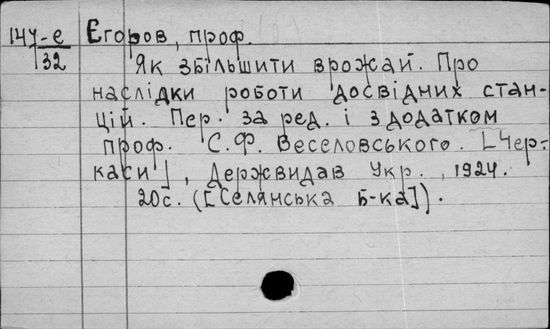 144-е Егоров, проф.
32 Як збільшити врожай. Про
наслідки роботи досвідних стан-
цій. Пер. за ред. і з додатком
проф. С.Ф. Веселовського. [Чер-
каси], Держвидав Укр., 1924.
20с. ([Селянська Б-ка]).